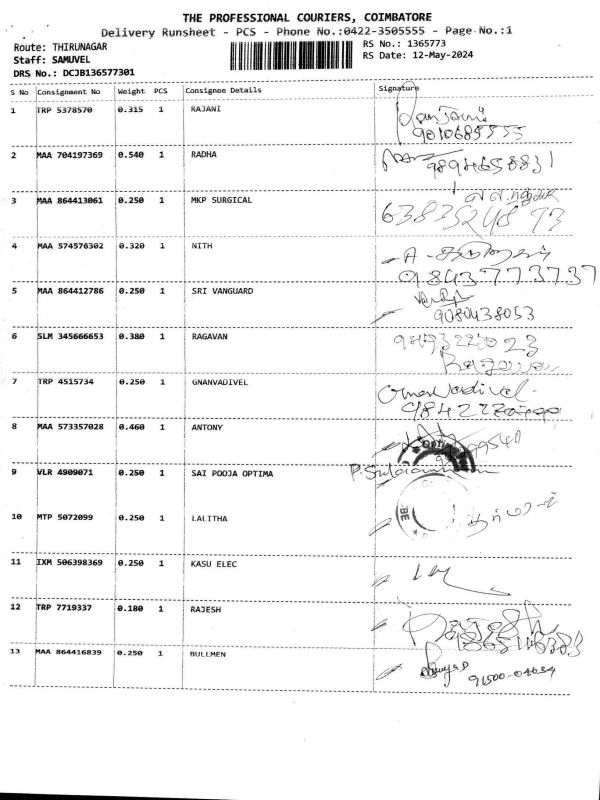 THE PROFESSIONAL COURIERS, COIMBATORE
Delivery Runsheet - PCS - Phone No.:0422-3505555 - Page No.:1
Route: THIRUNAGAR
RS No.: 1365773
Staff: SAMUVEL
RS Date: 12-May-2024
DRS No.: DCJB136577301
S No Consignment No Weight PCS Consignee Details Signature
1 TRP 5378570 0.315 1 RAJANI
9010685555
2 MAA 704197369 0.540 1 RADHA
9894658831
3 MAA 864413061 0.250 1 MKP SURGICAL
4 MAA 574576302 0.320 1 NITH
9843773737
5 MAA 864412786 0.250 1 SRI VANGUARD
9080438053
6 SLM 345666653 0.380 1 RAGAVAN
7 TRP 4515734 0.250 1 GNANVADIVEL
Gnanavadivel
8 MAA 573357028 0.460 1 ANTONY
9 VLR 4909071 0.250 1 SAI POOJA OPTIMA
10 MTP 5072099 0.250 1 LALITHA
11 IXM 506398369 0.250 1 KASU ELEC
12 TRP 7719337 0.180 1 RAJESH
13 MAA 864416839 0.250 1 BULLMEN
91500-04634